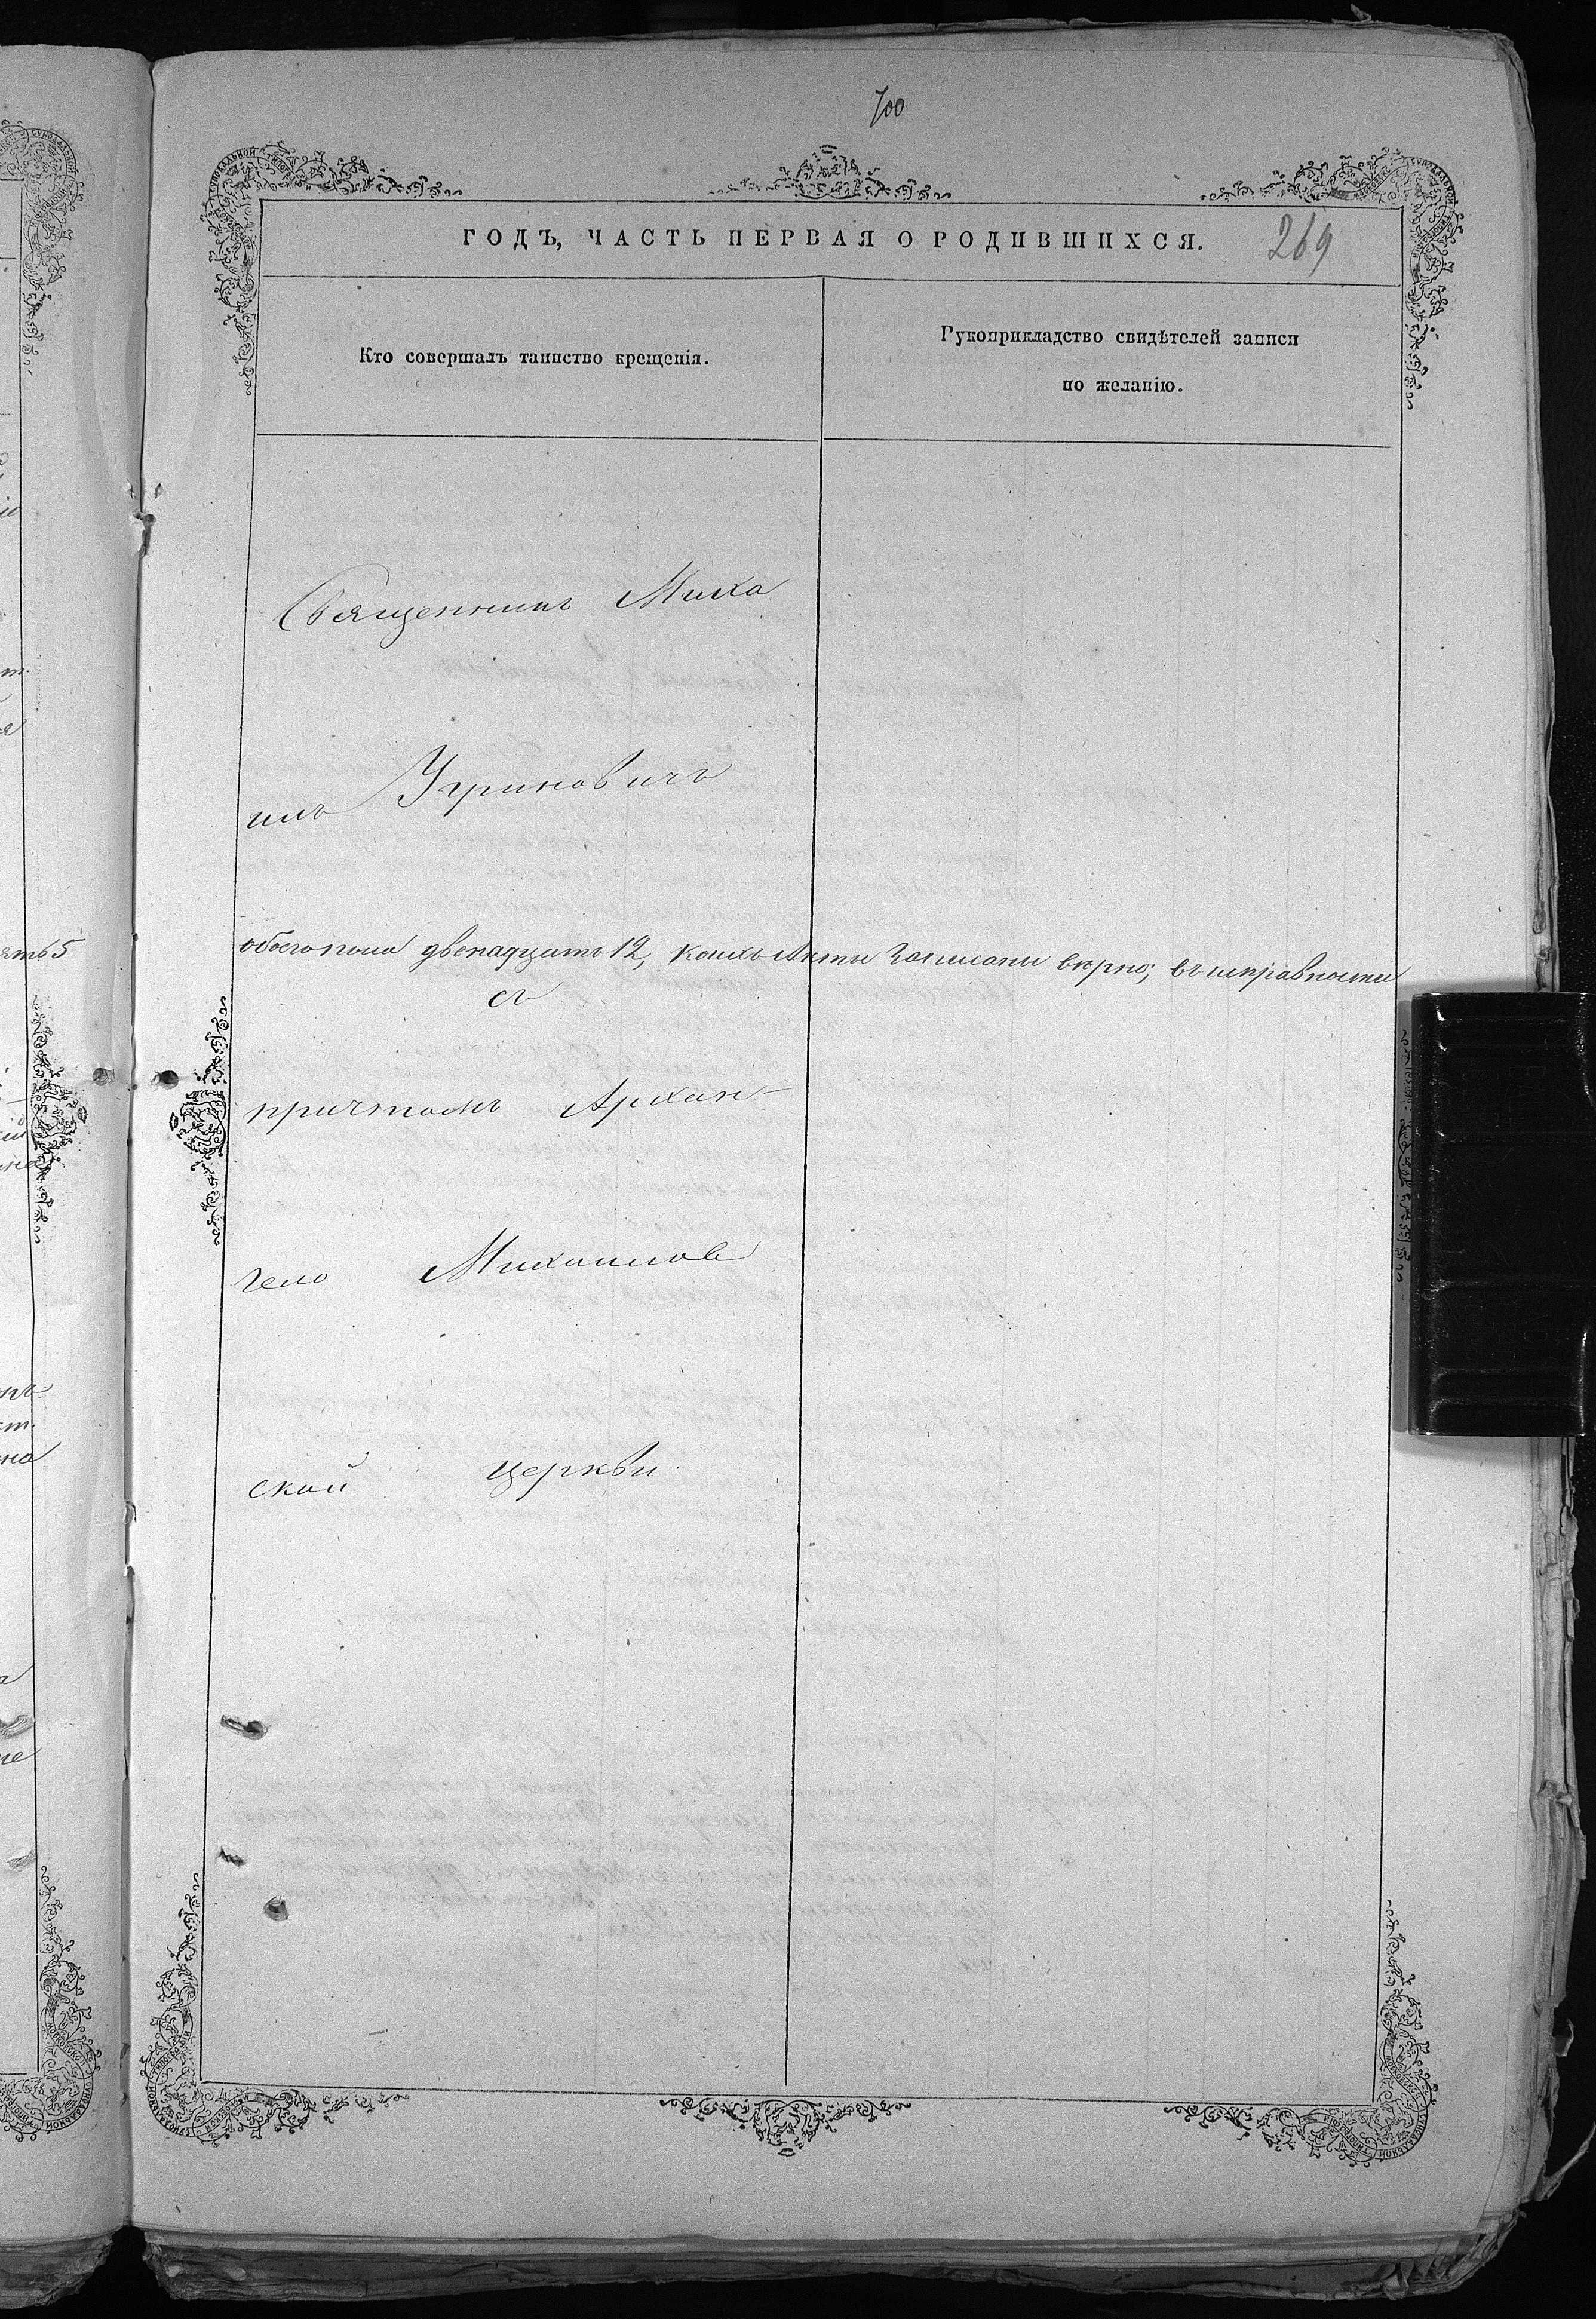 700
ГОДЪ, ЧАСТЬ ПЕРВАЯ О РОДИВШИХСЯ.
269
Кто совершалъ таинство крещенія.
Рукоприкладство свидѣтелей записи
по желанію.
Священникъ Миха
илъ Угриновичъ
обоего пола двенадцать 12, коихъ Акты Записаны вѣрно; въ исправности
съ
причтомъ Архан
гело Михаилов
ской церкви